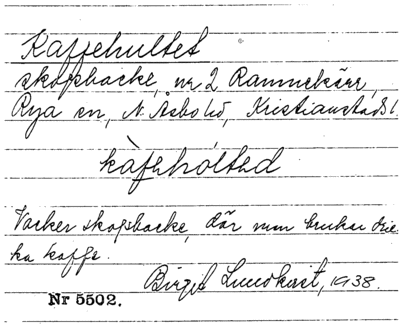 Kaffehultet
skogsbacke, nr 2 Rammekärr,
Rya sn, N. Åsbo hd, Kristianstads l.
kàfəhöltəd
Vacker skogsbacke, där man brukar dric-
ka kaffe.
Birgit Lundkvist, 1938.
Nr 5502.